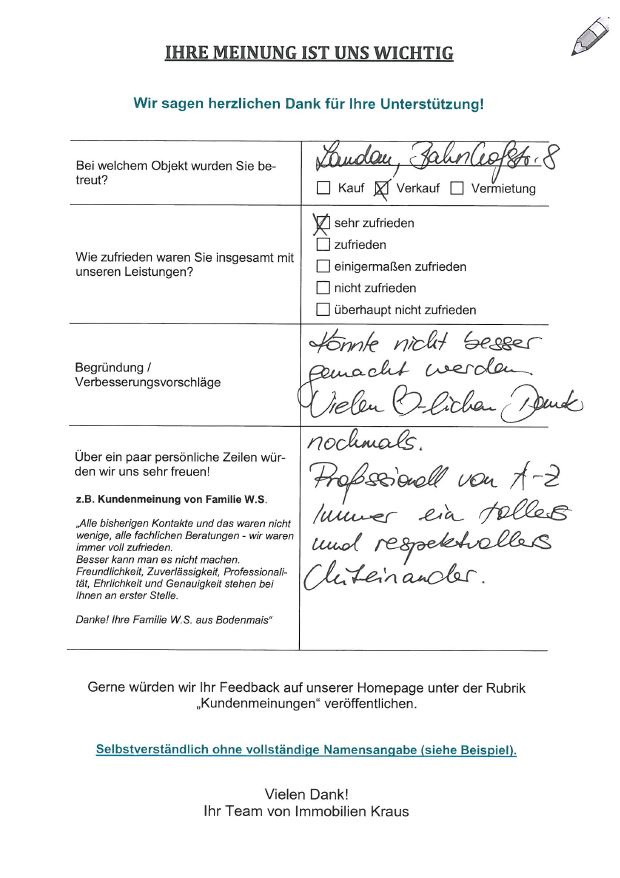 IHRE MEINUNG IST UNS WICHTIG
Wir sagen herzlichen Dank für Ihre Unterstützung!
Bei welchem Objekt wurden Sie be-
treut?
Landau, Bahnhofstr. 8
Kauf Verkauf Vermietung
Wie zufrieden waren Sie insgesamt mit
unseren Leistungen?
sehr zufrieden
zufrieden
einigermaßen zufrieden
nicht zufrieden
überhaupt nicht zufrieden
Begründung /
Verbesserungsvorschläge
Könnte nicht besser
gemacht werden.
Vielen lichen Dank
Über ein paar persönliche Zeilen wür-
den wir uns sehr freuen!
z.B. Kundenmeinung von Familie W.S.
„Alle bisherigen Kontakte und das waren nicht
wenige, alle fachlichen Beratungen - wir waren
immer voll zufrieden.
Besser kann man es nicht machen.
Freundlichkeit, Zuverlässigkeit, Professionali-
tät, Ehrlichkeit und Genauigkeit stehen bei
Ihnen an erster Stelle.
Danke! Ihre Familie W.S. aus Bodenmais"
nochmals.
Professionell von A-Z
Immer ein tolles
und respektvolles
Miteinander.
Gerne würden wir Ihr Feedback auf unserer Homepage unter der Rubrik
„Kundenmeinungen" veröffentlichen.
Selbstverständlich ohne vollständige Namensangabe (siehe Beispiel).
Vielen Dank!
Ihr Team von Immobilien Kraus